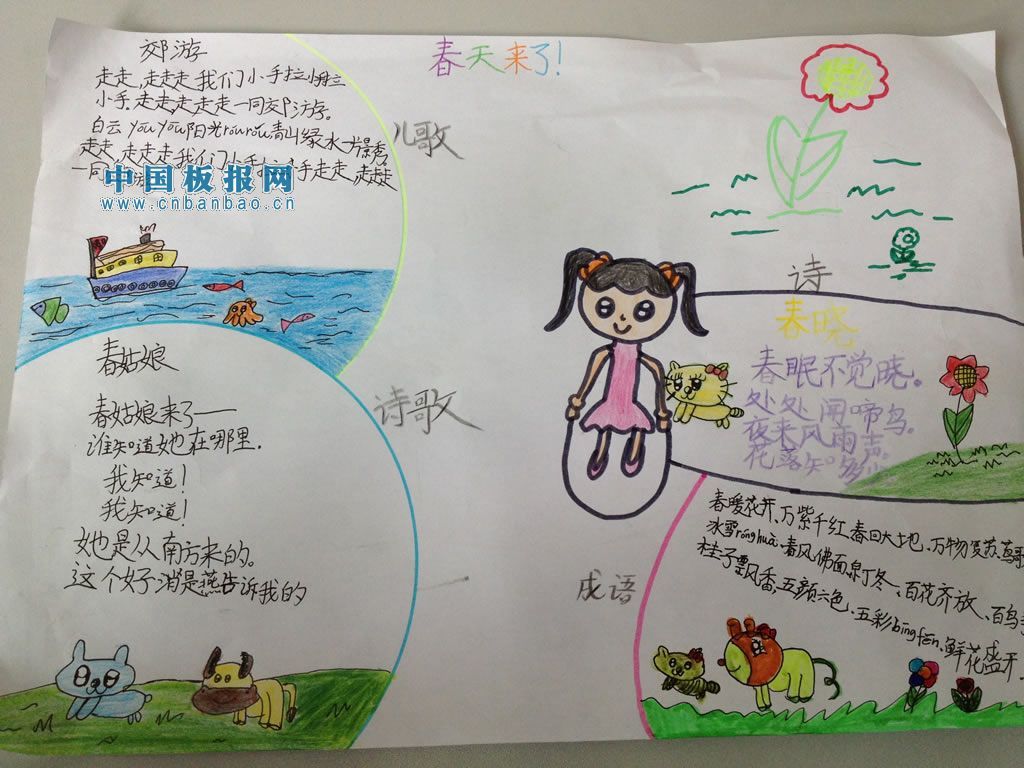 春天来了!
郊游
走走,走走走我们小手拉小手
小手,走走走走走一同郊游。
白云yōuyōu阳光róuróu,青山绿水一片景秀。
走走,走走走我们小手拉小手走走,走走走
一同
中国板报网
www.cnbanbao.cn
儿歌
春姑娘
春姑娘来了——
谁知道她在哪里.
我知道!
我知道!
她是从南方来的。
这个好消是燕告诉我的
诗歌
诗
春晓
春眠不觉晓。
处处闻啼鸟。
夜来风雨声。
花落知多少
成语
春暖花开、万紫千红、春回大地、万物复苏、莺歌
冰雪rónghuà、春风佛面、泉丁冬、百花齐放、百鸟
桂子飘香,五颜六色、五彩bīngfēn、鲜花盛开.